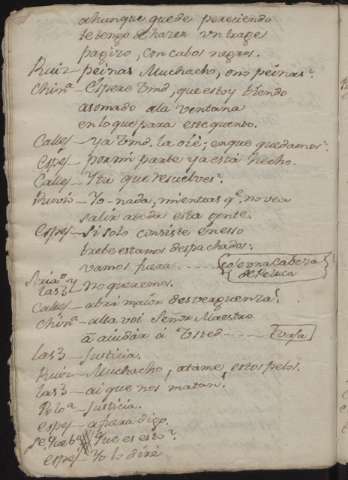 ahunque quede pereciendo
te tengo de hazer un trage
pagizo, con cabos negros.
Ruiz — peinas Muchacho, o no peinas?
Chinª — Espere Vmd, que estoy viendo
asomado a la ventana
en lo que para este quento.
Callej — ya Vmd. la oie; en que quedamos?
Espej — por mi parte ya está hecho.
Callej — Y tu que resuelves?
— Yo nada, mientras qe no vea
salir a toda esta gente.
Espej — Si solo consiste en eso
brebe estamos despachados.
vamos fuera coje una Cabeza
de Peluca
las 3 — no queremos.
Callej — abrá maior desverguenza!
Chinª — alla voi Señor Maestro
á aiudar á Usted
las 3 — Justicia.
Ruiz — Muchacho, atame estos pelos.
las 3 — ai que nos matan!
Polª — Justicia.
espej — apara digo.
Que es esto?
espej — Yo lo diré